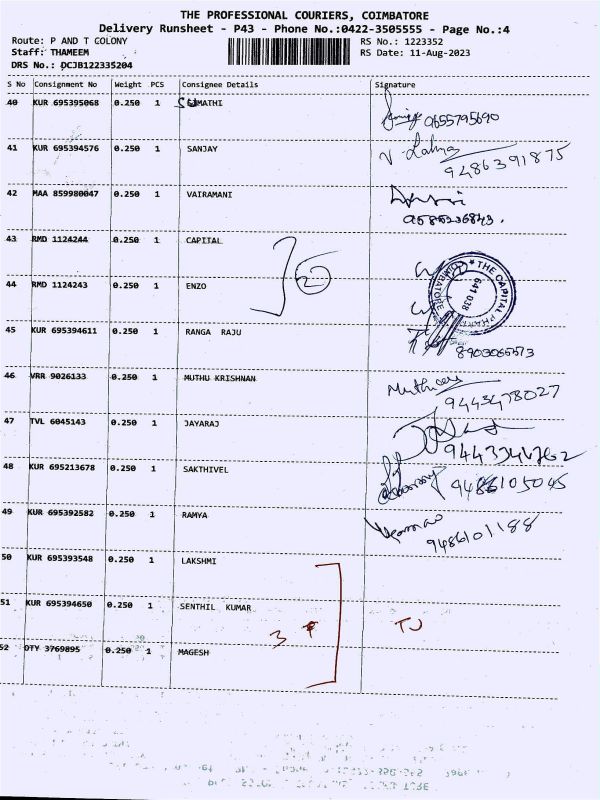 THE PROFESSIONAL COURIERS, COIMBATORE
Delivery Runsheet - P43 - Phone No.:0422-3505555 - Page No.:4
Route: P AND T COLONY RS No.: 1223352
Staff: THAMEEM RS Date: 11-Aug-2023
DRS No.: DCJB122335204
S No Consignment No Weight PCS Consignee Details Signature
40 KUR 695395068 0.250 1 SUMATHI
9655795690
41 KUR 695394576 0.250 1 SANJAY
9486391875
42 MAA 859980047 0.250 1 VAIRAMANI
43 RMD 1124244 0.250 1 CAPITAL
2
THE CAPITAL
COIMBATORE
641 038
44 RMD 1124243 0.250 1 ENZO
45 KUR 695394611 0.250 1 RANGA RAJU
46 VRR 9026133 0.250 1 MUTHU KRISHNAN
9443478027
47 TVL 6045143 1 0.250 1 JAYARAJ
48 KUR 695213678 0.250 1 SAKTHIVEL
9486105045
49 KUR 695392582 0.250 1 RAMYA
9486101188
50 KUR 695393548 0.250 1 LAKSHMI
51 KUR 695394650 0.250 1 SENTHIL KUMAR
3 TJ
52 OTY 3769895 0.250 1 MAGESH